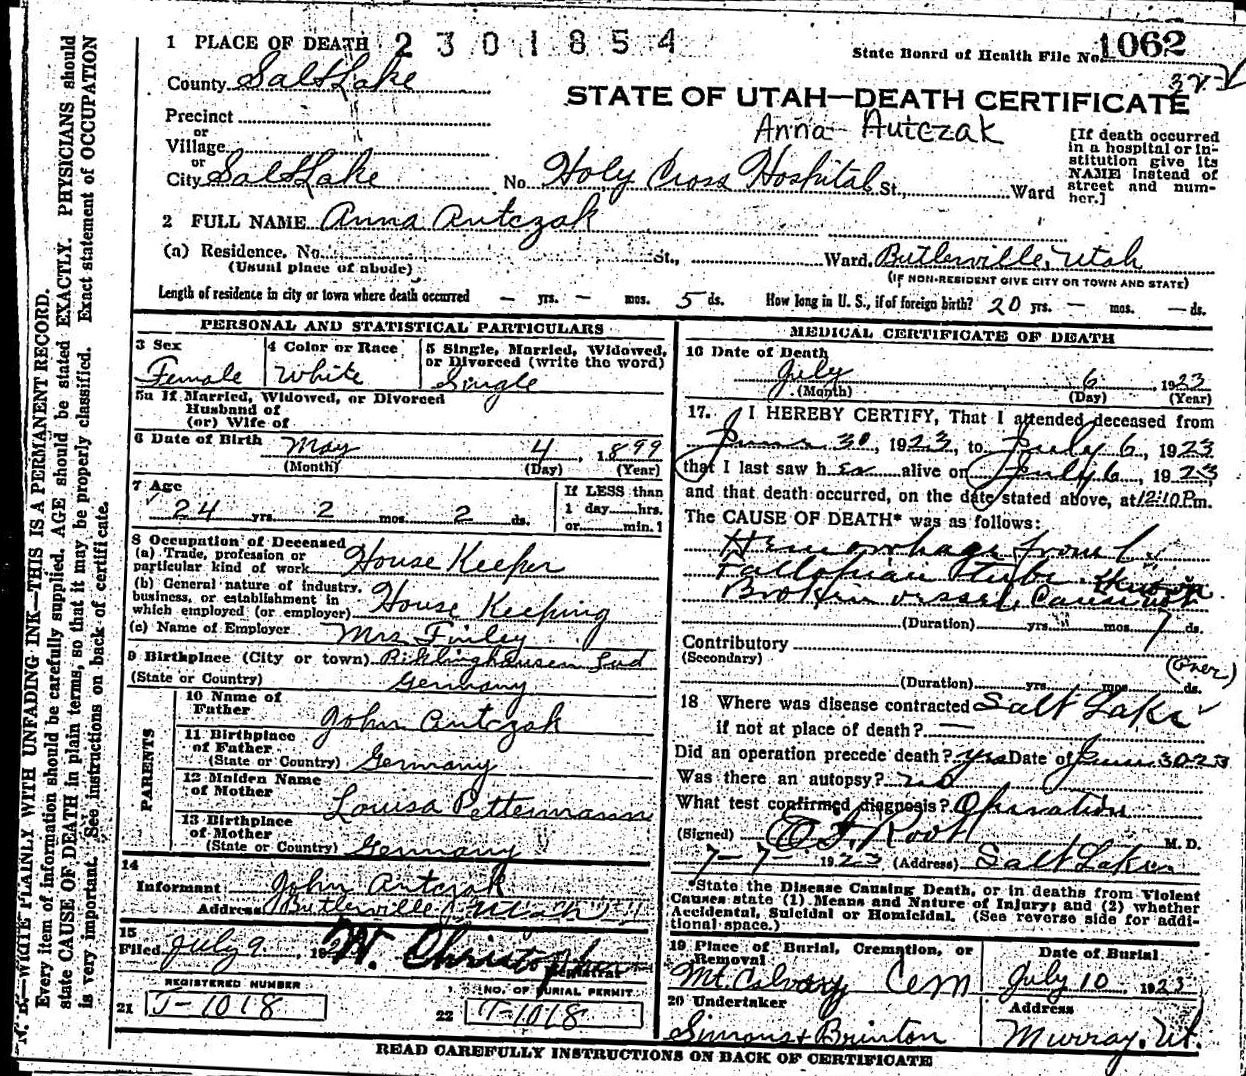 1 PLACE OF DEATH 2301854
State Board of Health File No. 1062
County Salt Lake
32
STATE OF UTAH—DEATH CERTIFICATE
Precinct
or
Village
or
City Salt Lake No. Holy Cross Hospital St., Ward
Anna Autczak
[If death occurred
in a hospital or in-
stitution give its
NAME instead of
street and num-
ber.]
2 FULL NAME Anna Autczak
(a) Residence, No. St., Ward, Butlerville, Utah
(Usual place of abode) (IF NON-RESIDENT GIVE CITY OR TOWN AND STATE)
Length of residence in city or town where death occurred — yrs. — mos. 5 ds. How long in U. S., if of foreign birth? 20 yrs. — mos. — ds.
PERSONAL AND STATISTICAL PARTICULARS
3 Sex
Female
4 Color or Race
White
5 Single, Married, Widowed,
or Divorced (write the word)
Single
5a If Married, Widowed, or Divorced
Husband of
(or) Wife of
6 Date of Birth May 4, 1899
(Month) (Day) (Year)
7 Age
24 yrs. 2 mos. 2 ds.
If LESS than
1 day hrs.
or min. ?
8 Occupation of Deceased
(a) Trade, profession or
particular kind of work House Keeper
(b) General nature of industry,
business, or establishment in
which employed (or employer) House Keeping
(c) Name of Employer Mrs Finley
9 Birthplace (City or town)
(State or Country) Germany
PARENTS
10 Name of
Father John Autczak
11 Birthplace
of Father
(State or Country) Germany
12 Maiden Name
of Mother Louisa Pettermann
13 Birthplace
of Mother
(State or Country) Germany
14
Informant John Autczak
Address Butlerville, Utah
15
Filed July 9, 192 W. Christo
Registrar
REGISTERED NUMBER
21 J-1018
NO. OF BURIAL PERMIT
22 J-1018
MEDICAL CERTIFICATE OF DEATH
16 Date of Death
July 6, 1923
(Month) (Day) (Year)
17. I HEREBY CERTIFY, That I attended deceased from
June 30, 1923, to July 6, 1923
that I last saw her alive on July 6, 1923
and that death occurred, on the date stated above, at 12:10 P.m.
The CAUSE OF DEATH* was as follows:
Hemorrhage from
Fallopian tube
Broken vessel
(Duration) yrs. mos. 7 ds.
Contributory
(Secondary)
(over)
(Duration) yrs. mos. ds.
18 Where was disease contracted Salt Lake
if not at place of death? —
Did an operation precede death? yes Date of June 30 23
Was there an autopsy? no
What test confirmed diagnosis? Operation
(Signed) Root M. D.
7-7- 1923 (Address) Salt Lake
*State the Disease Causing Death, or in deaths from Violent
Causes state (1) Means and Nature of Injury; and (2) whether
Accidental, Suicidal or Homicidal. (See reverse side for addi-
tional space.)
19 Place of Burial, Cremation, or
Removal
Mt. Calvary Cem
Date of Burial
July 10, 1923
20 Undertaker
Simons & Brinton
Address
Murray, Ut.
READ CAREFULLY INSTRUCTIONS ON BACK OF CERTIFICATE
N. B.—WRITE PLAINLY WITH UNFADING INK—THIS IS A PERMANENT RECORD.
Every item of information should be carefully supplied. AGE should be stated EXACTLY. PHYSICIANS should
state CAUSE OF DEATH in plain terms, so that it may be properly classified. Exact statement of OCCUPATION
is very important. See instructions on back of certificate.